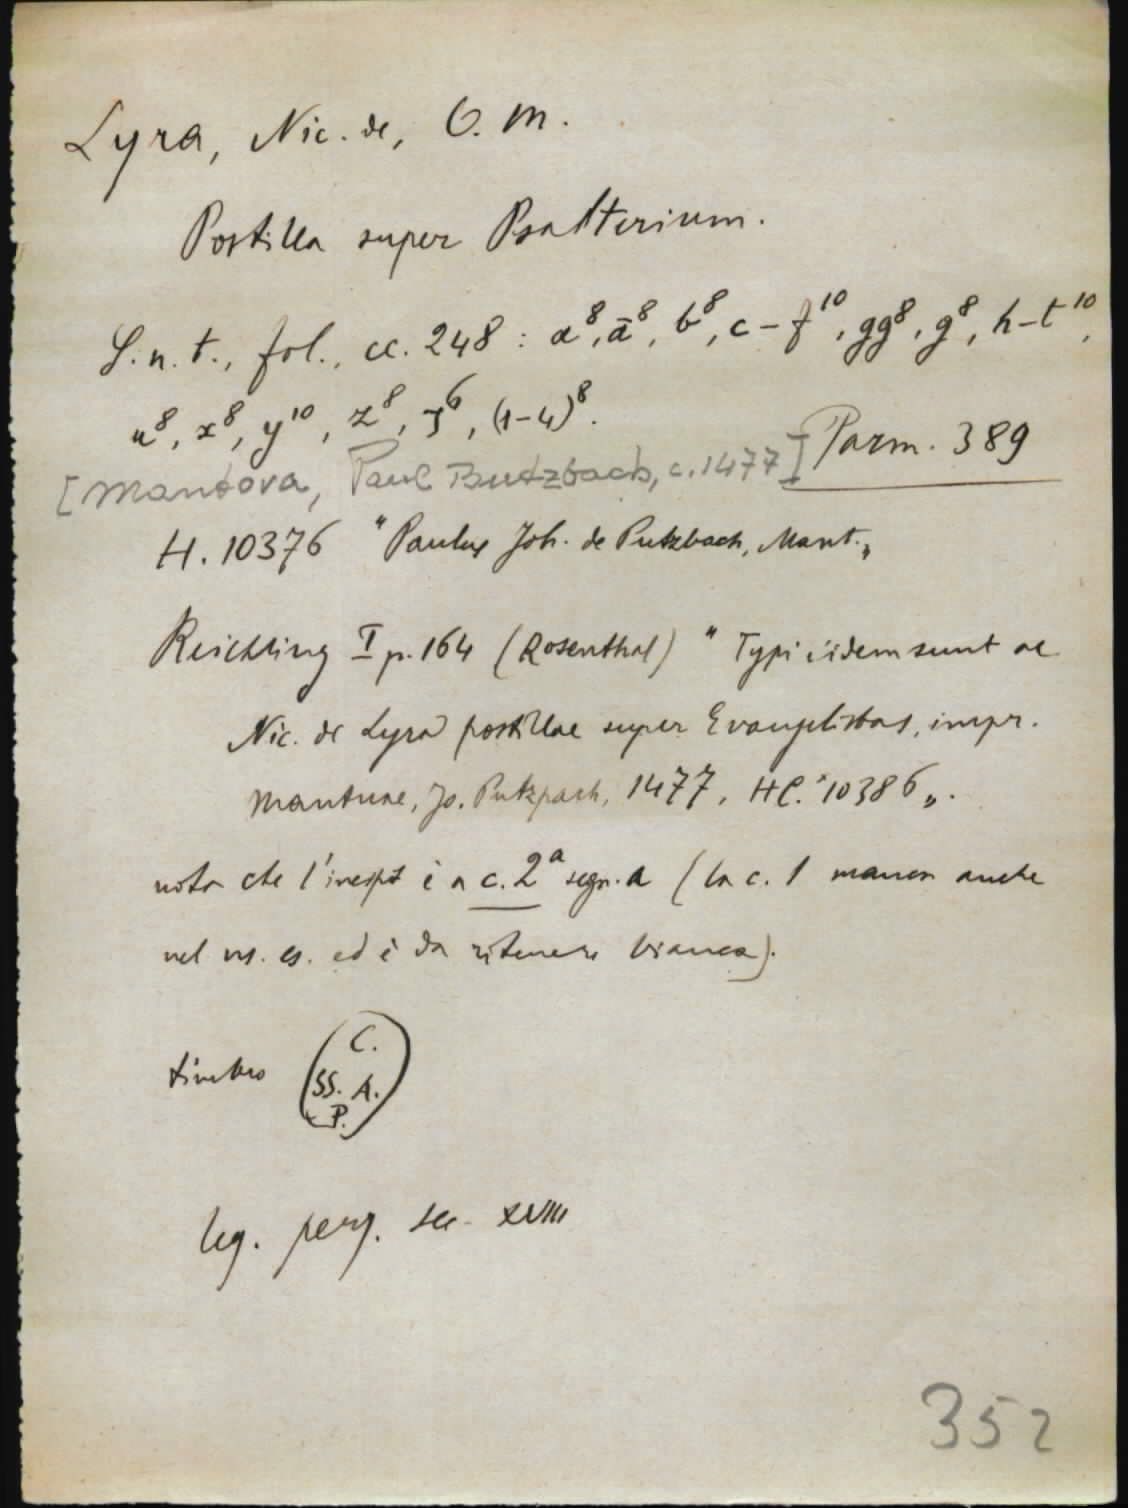 Lyra, Nic. de, O. M.
Postilla super Psalterium.
S. n. t., fol., cc. 248 : a⁸, ā⁸, b⁸, c–f¹⁰, gg⁸, g⁸, h–t¹⁰,
u⁸, x⁸, y¹⁰, z⁸, ʒ⁶, (1–4)⁸.
Parm. 389
[Mantova, Paul Butzbach, c. 1477]
H. 10376 "Paulus Joh. de Putzbach, Mant.„
Reichling I p. 164 (Rosenthal) " Typi iidem sunt ac
Nic. de Lyra postillae super Evangelistas, impr.
Mantuae, Jo. Putzpach, 1477, HC. *10386„.
nota che l'incipit è a c. 2ª segn. a (la c. 1 manca anche
nel ns. es. ed è da ritenere bianca).
timbro C.
SS. A.
P.
leg. perg. sec. XVIII
352